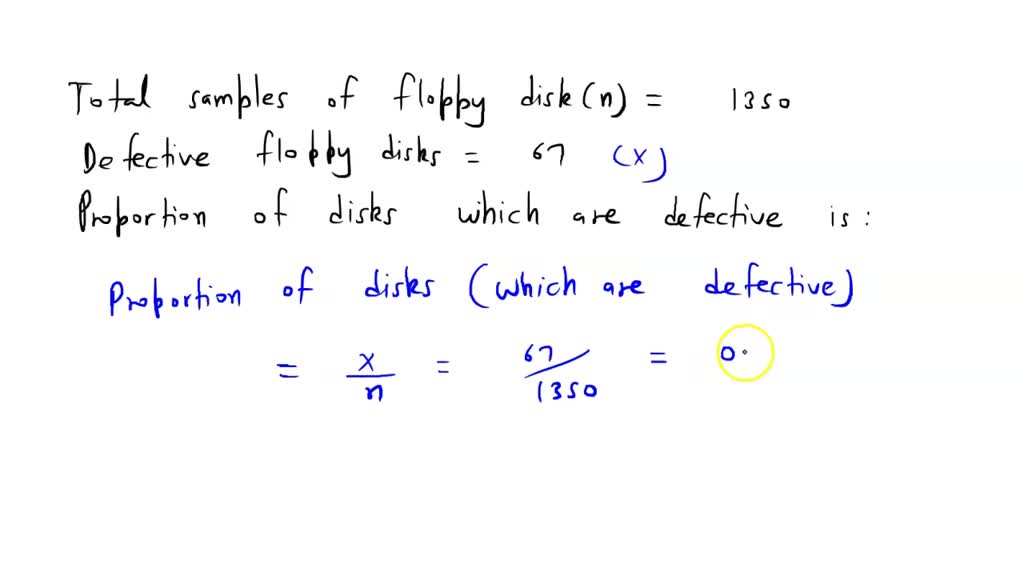 Total samples of floppy disk(n) = 1350
Defective floppy disks = 67 (x)
Proportion of disks which are defective is :
Proportion of disks (which are defective)
= x/n = 67/1350 = 0.